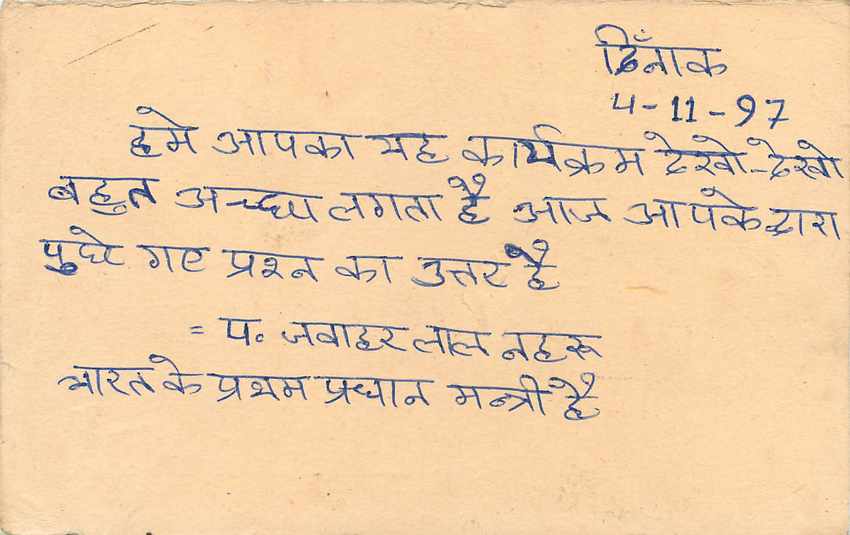 दिनाँक
4-11-97
हमे आपका यह कार्यक्रम देखो-देखो
बहुत अच्छा लगता है आज आपके द्वारा
पुछे गए प्रश्न का उत्तर है
= प. जवाहर लाल नहरू
भारत के प्रथम प्रधान मन्त्री है